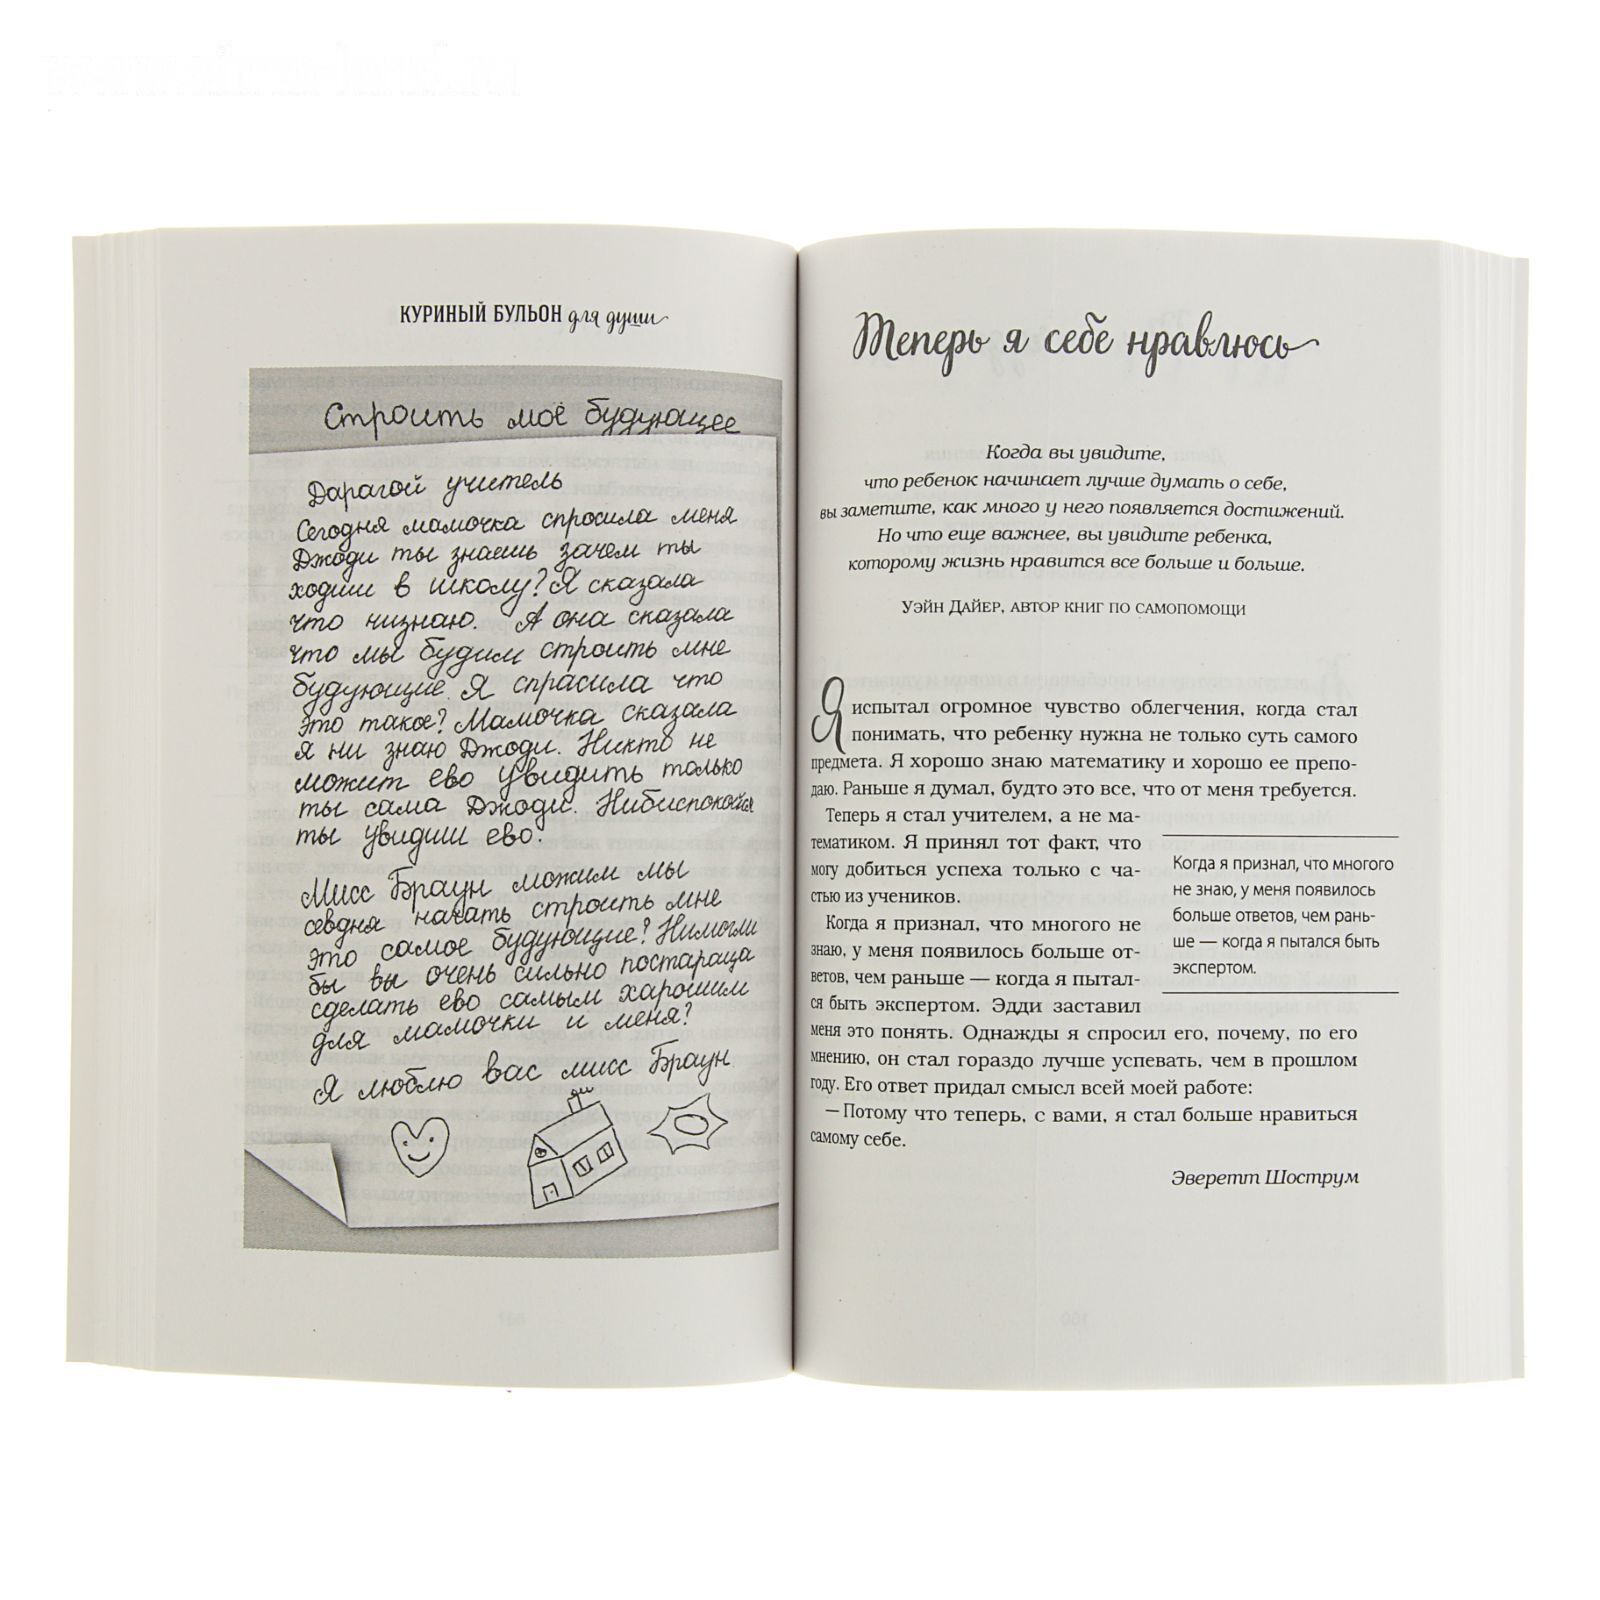 КУРИНЫЙ БУЛЬОН для души
Строить моё будующее
Дарагой учитель
Сегодня мамочка спросила меня
Джоди ты знаешь зачем ты
ходиш в школу? Я сказала
что низнаю. А она сказала
что мы будим строить мне
будующие. Я спрасила что
это такое? Мамочка сказала
я ни знаю Джоди. Никто не
можит ево увидить только
ты сама Джоди. Нибиспокойся
ты увидиш ево.
Мисс Браун можим мы
севдня начать строить мне
это самое будующие? Нимогли
бы вы очень сильно постараца
сделать ево самым харошим
для мамочки и меня?
Я люблю вас мисс Браун
Теперь я себе нравлюсь
Когда вы увидите,
что ребенок начинает лучше думать о себе,
вы заметите, как много у него появляется достижений.
Но что еще важнее, вы увидите ребенка,
которому жизнь нравится все больше и больше.
Уэйн Дайер, автор книг по самопомощи
Я испытал огромное чувство облегчения, когда стал
понимать, что ребенку нужна не только суть самого
предмета. Я хорошо знаю математику и хорошо ее препо-
даю. Раньше я думал, будто это все, что от меня требуется.
Теперь я стал учителем, а не ма-
тематиком. Я принял тот факт, что
могу добиться успеха только с ча-
стью из учеников.
Когда я признал, что многого не
знаю, у меня появилось больше от-
ветов, чем раньше — когда я пытал-
ся быть экспертом. Эдди заставил
меня это понять. Однажды я спросил его, почему, по его
мнению, он стал гораздо лучше успевать, чем в прошлом
году. Его ответ придал смысл всей моей работе:
— Потому что теперь, с вами, я стал больше нравиться
самому себе.
Эверетт Шострум
Когда я признал, что многого
не знаю, у меня появилось
больше ответов, чем рань-
ше — когда я пытался быть
экспертом.